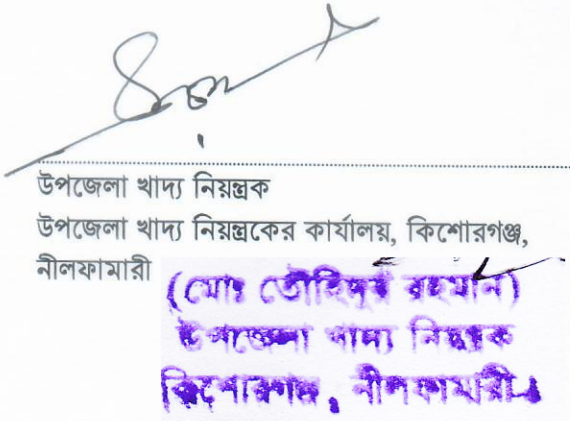 উপজেলা খাদ্য নিয়ন্ত্রক
উপজেলা খাদ্য নিয়ন্ত্রকের কার্যালয়, কিশোরগঞ্জ,
নীলফামারী
(মোঃ তৌহিদুর রহমান)
উপজেলা খাদ্য নিয়ন্ত্রক
কিশোরগঞ্জ, নীলফামারী।